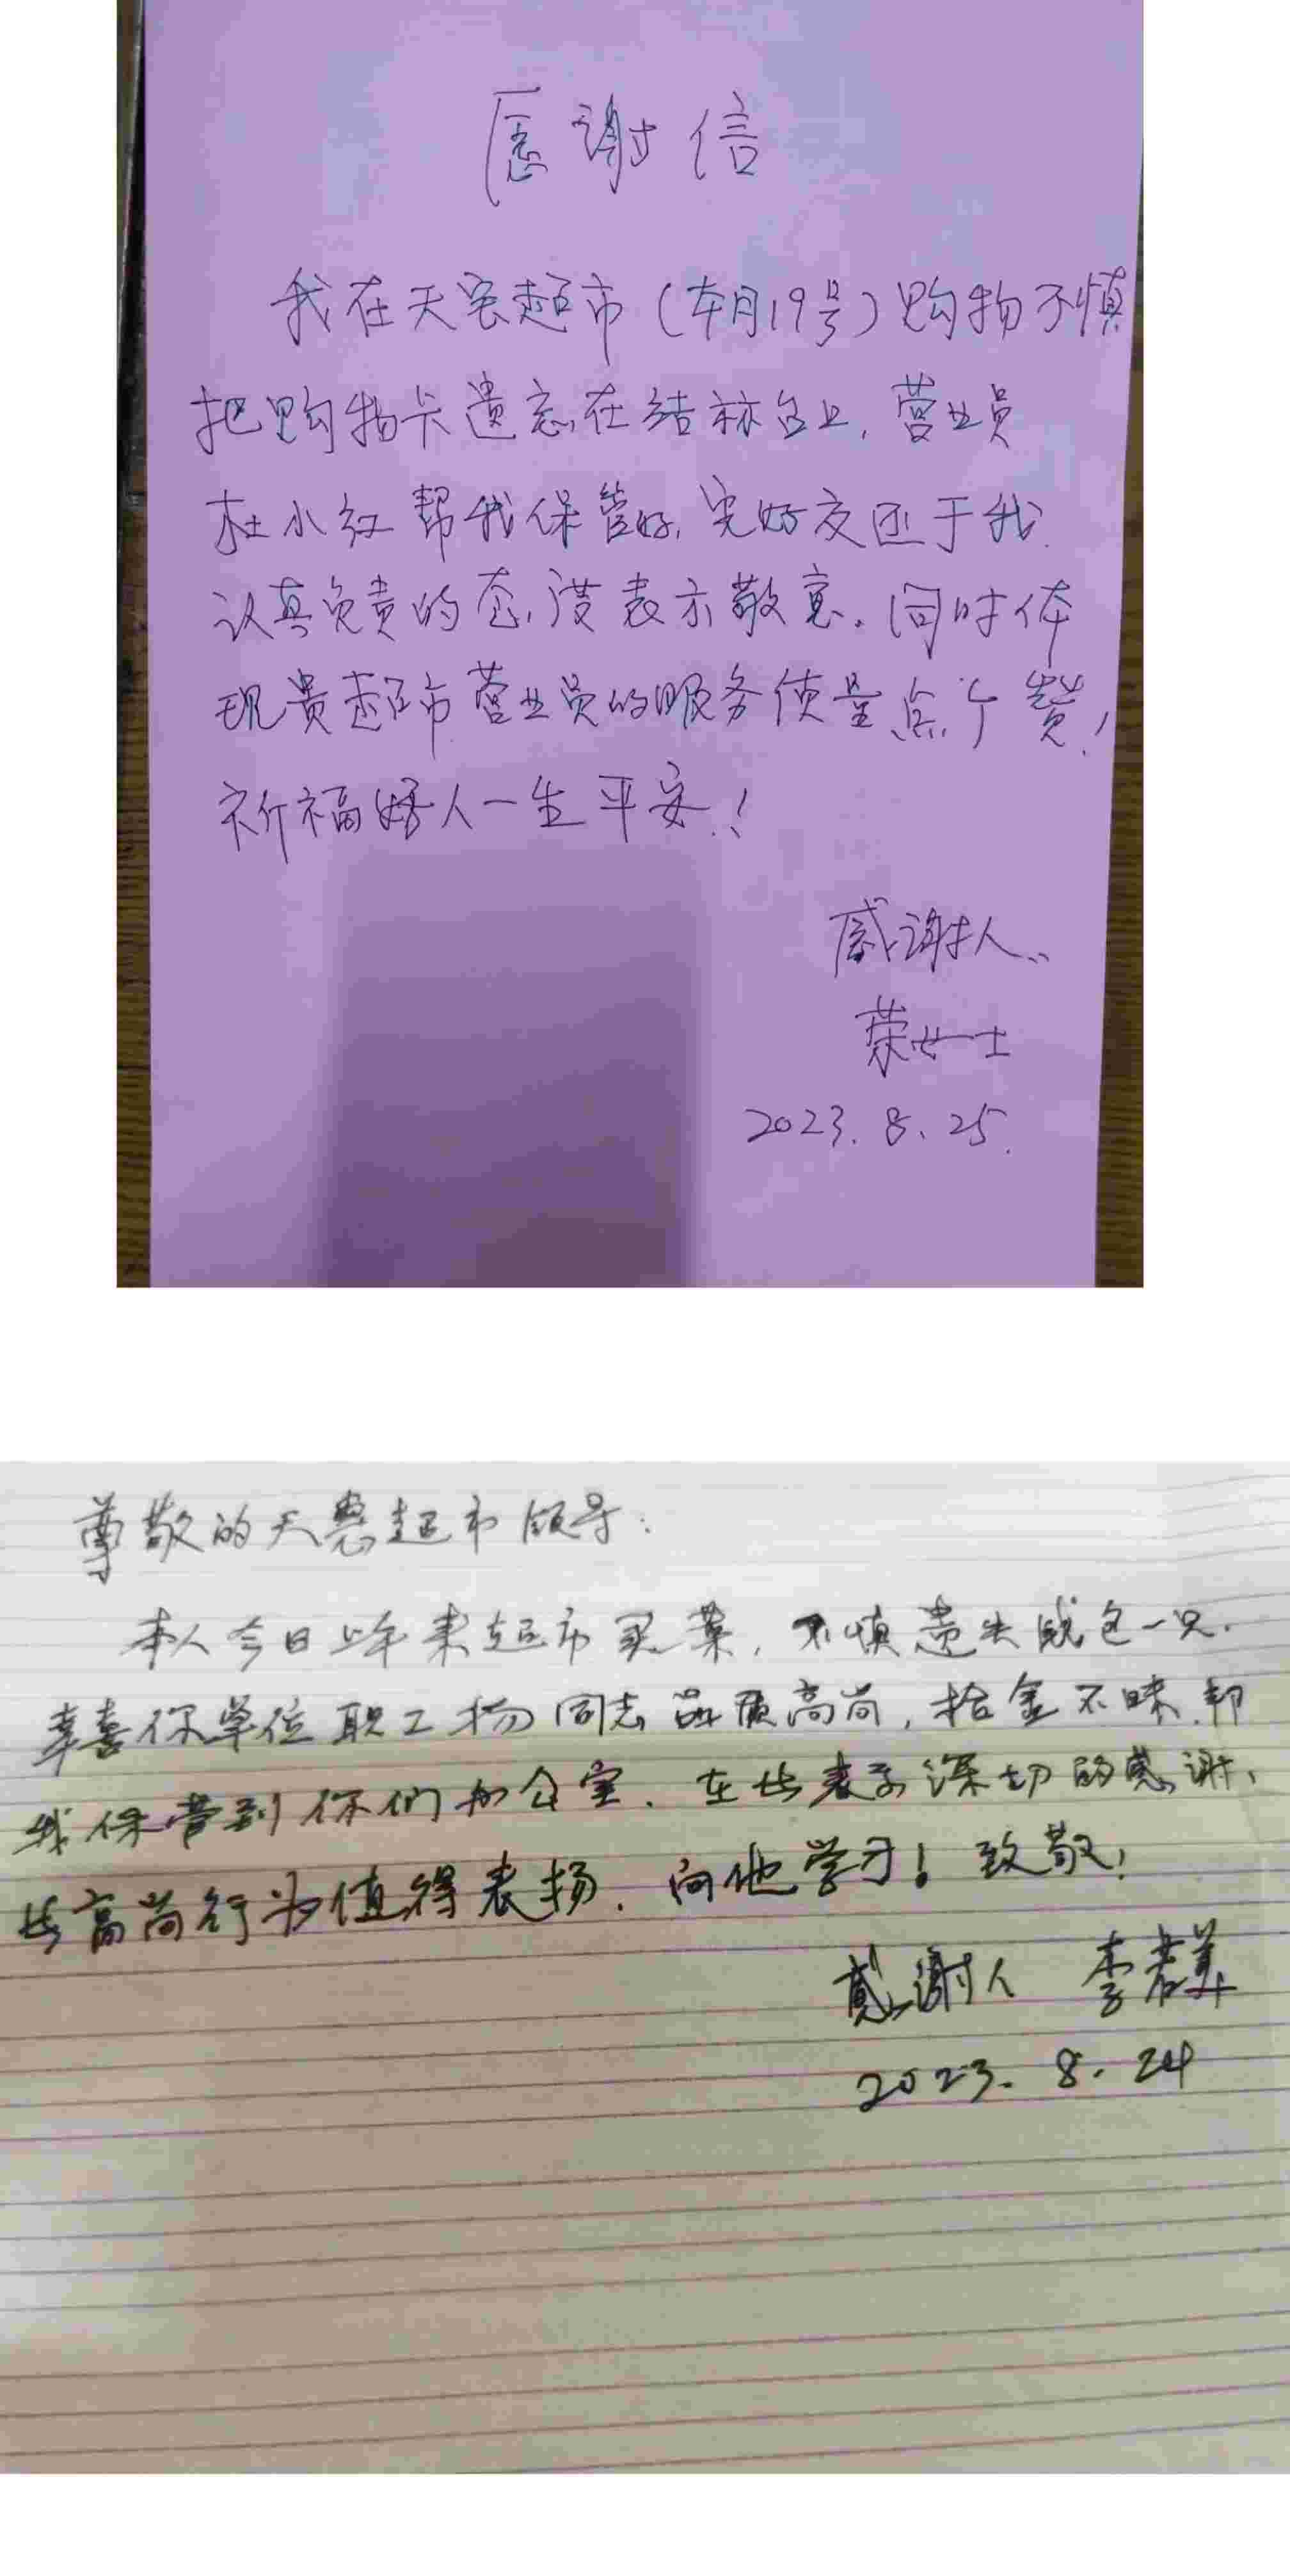 感谢信
我在天客超市(本月19号)购物不慎
把购物卡遗忘在结帐台上,营业员
杜小红帮我保管好,完好交还于我.
认真负责的态度表示敬意。同时体
现贵超市营业员的服务质量点个赞!
祈福好人一生平安!
感谢人:
荣女士
2023.8.25.
尊敬的天惠超市领导:
本人今日上午来超市买菜,不慎遗失钱包一只.
幸喜你单位职工杨同志品质高尚,拾金不昧.帮
我保管到你们办公室.在此表示深切的感谢,
此高尚行为值得表扬.向他学习!致敬!
感谢人 李君美
2023.8.24